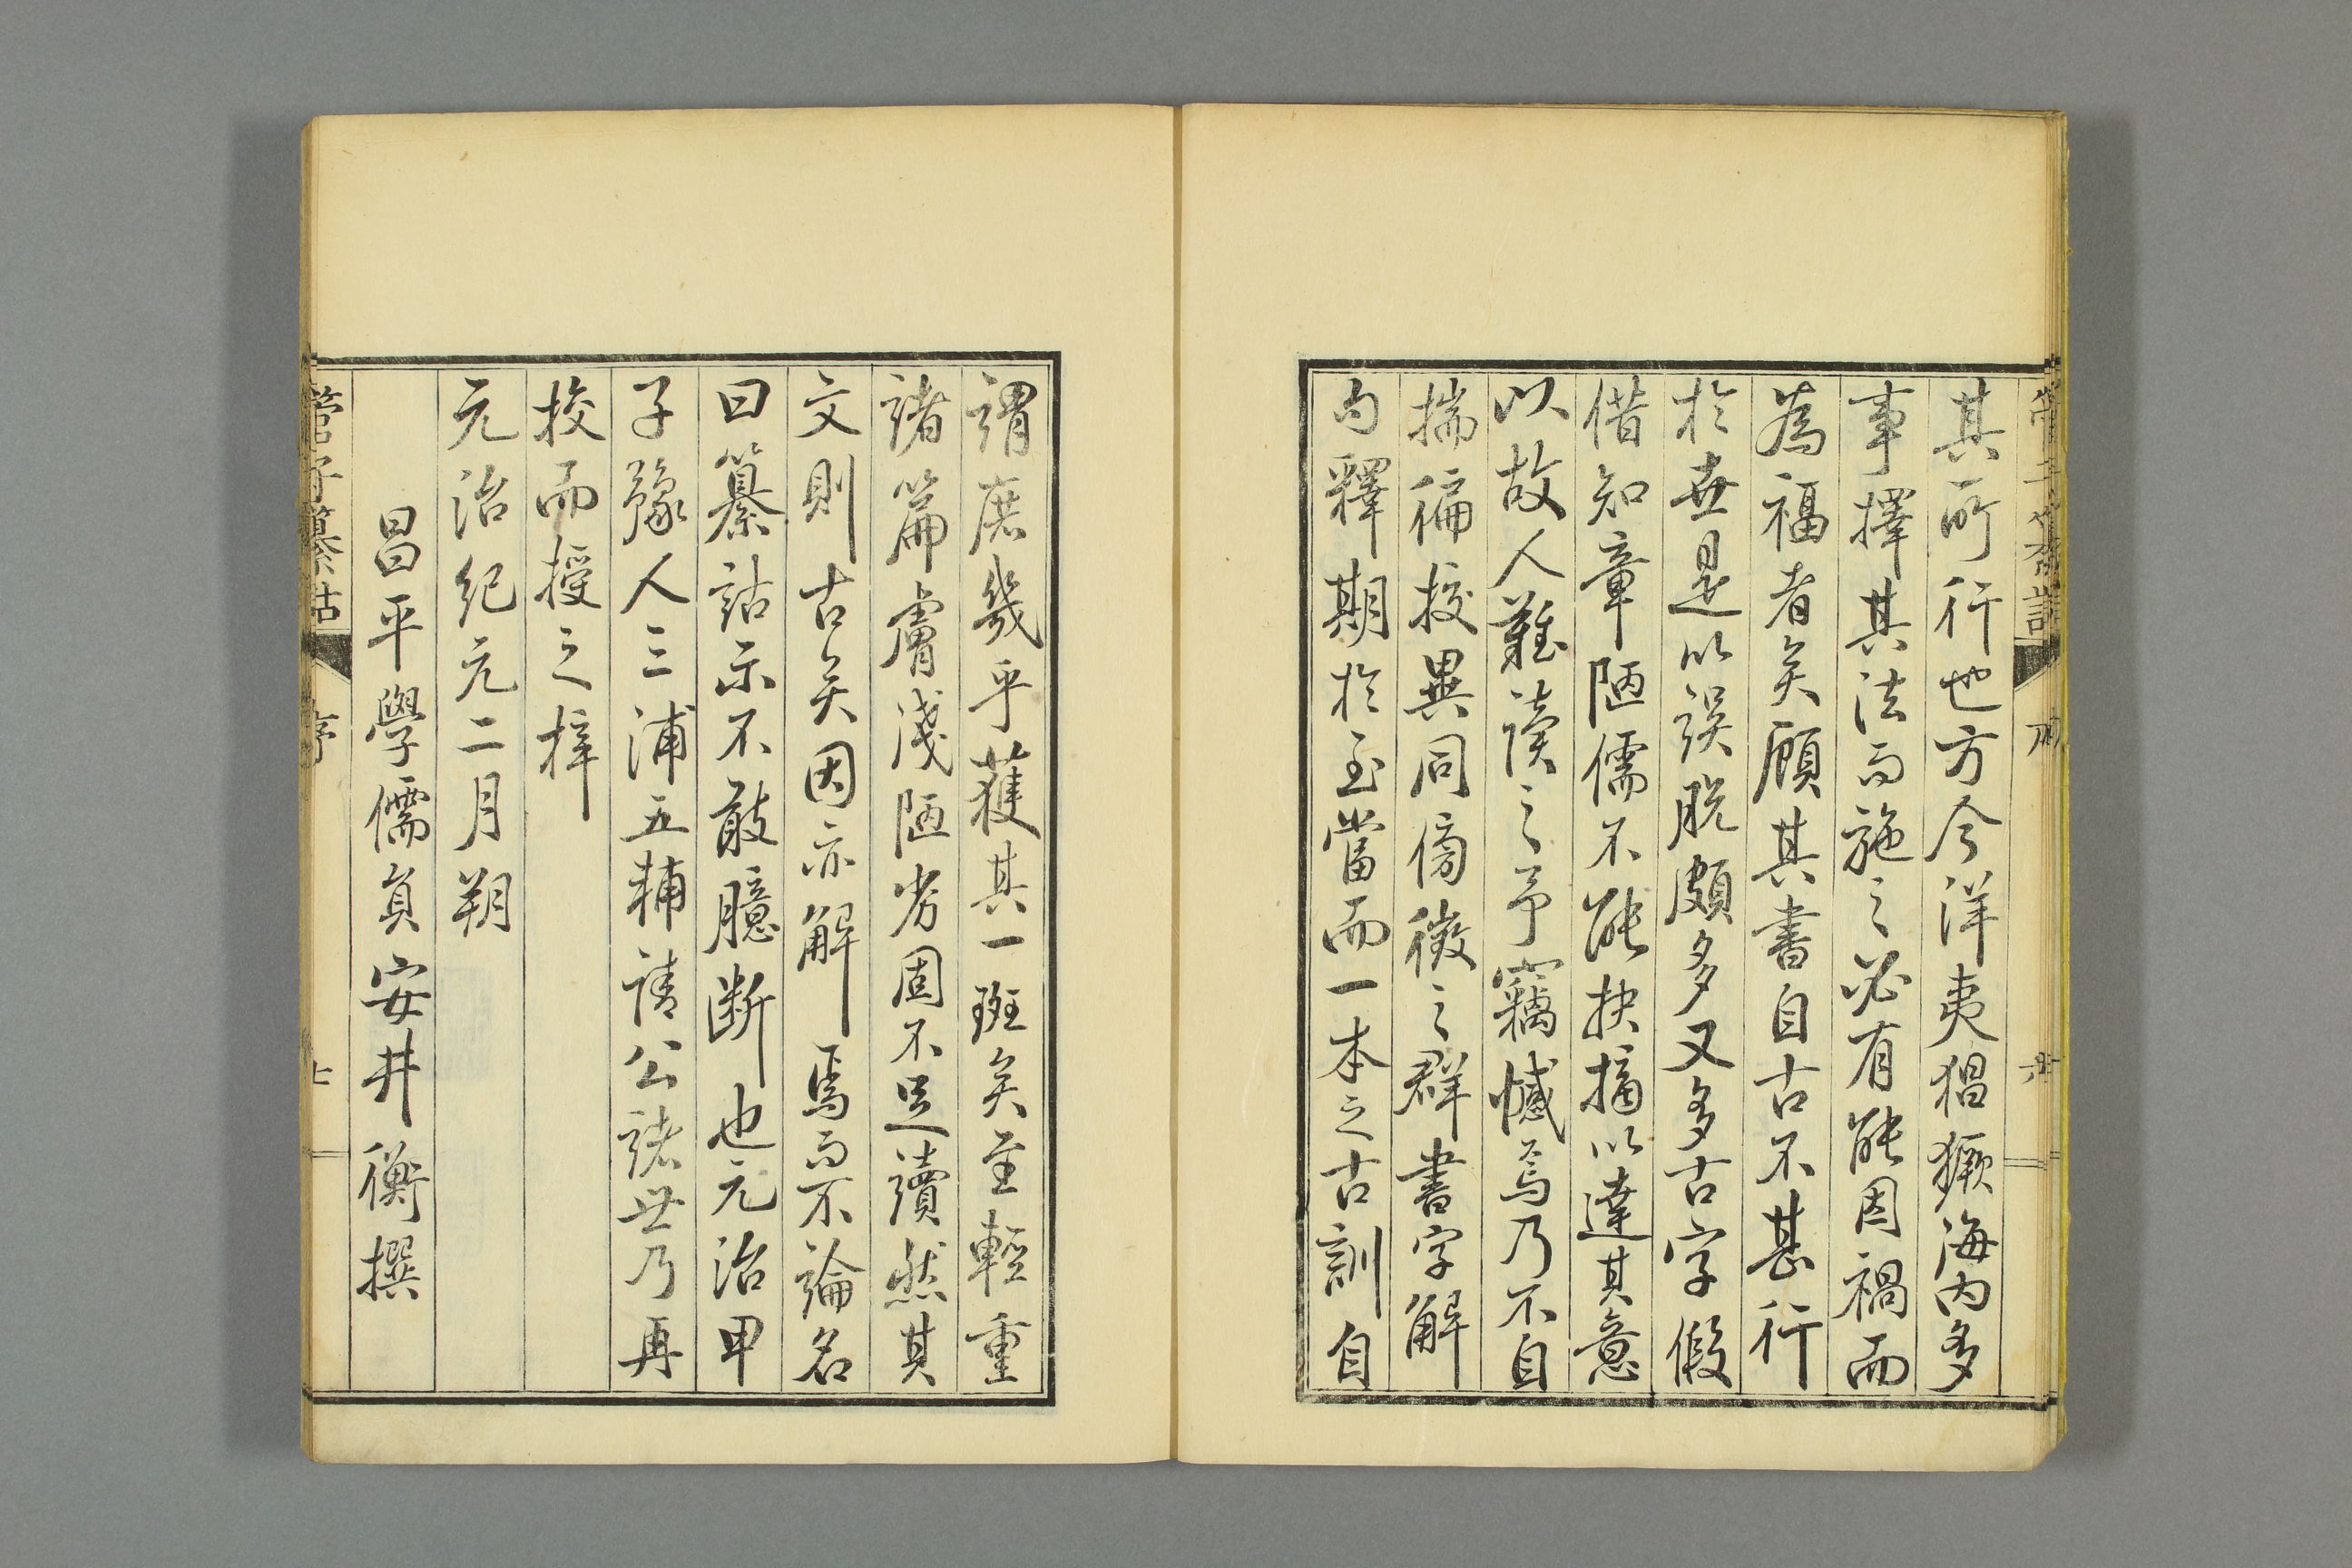 其所行也方今洋夷猖獗海内多
事擇其法而施之必有能因禍而
為福者矣顧其書自古不甚行
於世是以誤脱頗多又多古字假
借知章陋儒不能抉摘以達其意
以故人難讀之予竊憾焉乃不自
揣徧挍異同傍徴之群書字解
句釋期於至當而一本之古訓自
謂庶幾乎獲其一斑矣至輕重
諸篇膚淺陋劣固不足讀然其
文則古矣因亦解焉而不論名
曰纂詁示不敢臆断也元治甲
子豫人三浦五輔請公諸世乃再
挍而授之梓
元治紀元二月朔
昌平學儒員安井衡撰
管子纂詁
序
七